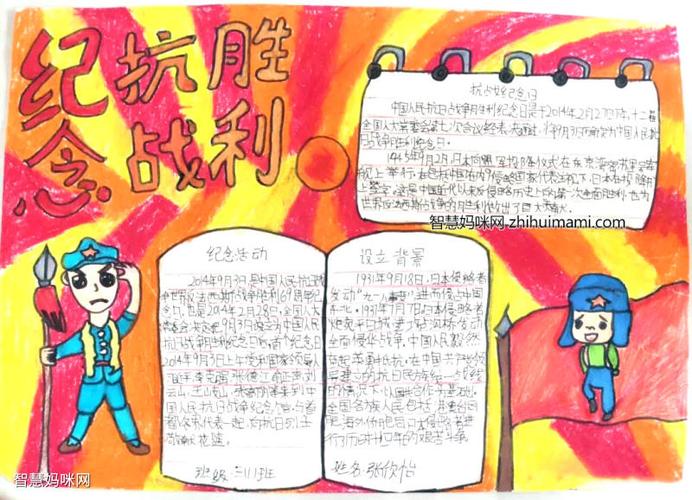 纪念
抗战
胜利
抗战纪念日
中国人民抗日战争胜利纪念日是于2014年2月27日下午,十二届
全国人大常委会第七次会议经表决通过,
1945年9月2日日本向盟军投降仪式在东京湾密苏里号军
舰上举行。在包括中国在内9个侵略国家代表注视下,日本在投降书
上签字。这是中国近代以来反侵略历史上的第一次全面胜利,也为
世界反法西斯战争的胜利作出了巨大贡献。
智慧妈咪网 zhihuimami.com
纪念活动
2014年9月3日是中国人民抗日战
争暨世界反法西斯战争胜利69周年纪
念日,也是2014年2月28日,全国人大
常委会决定把9月3日设立为中国人民
抗日战争胜利纪念日后,首个纪念日
2014年9月3日上午党和国家领导人
云山、王岐山、张高丽等来到中
国人民抗日战争纪念馆,与首
都各界代表一起,向抗日烈士
敬献花篮。
班级 三(1)班
设立背景
1931年9月18日,日本侵略者
发动“九一八事变”,进而侵占中国
东北。1937年7月7日,日本侵略者
炮轰宛平城,全
面侵华战争,中国人民毅然
奋起,英勇抵抗。在中国共产党倡
导建立的抗日民族统一战线
的情况下,以国共合作为基础,
全国各族人民包括
胞、海外侨胞同日本侵略者进
行了历时十四年的艰苦斗争
姓名:张欣怡
智慧妈咪网